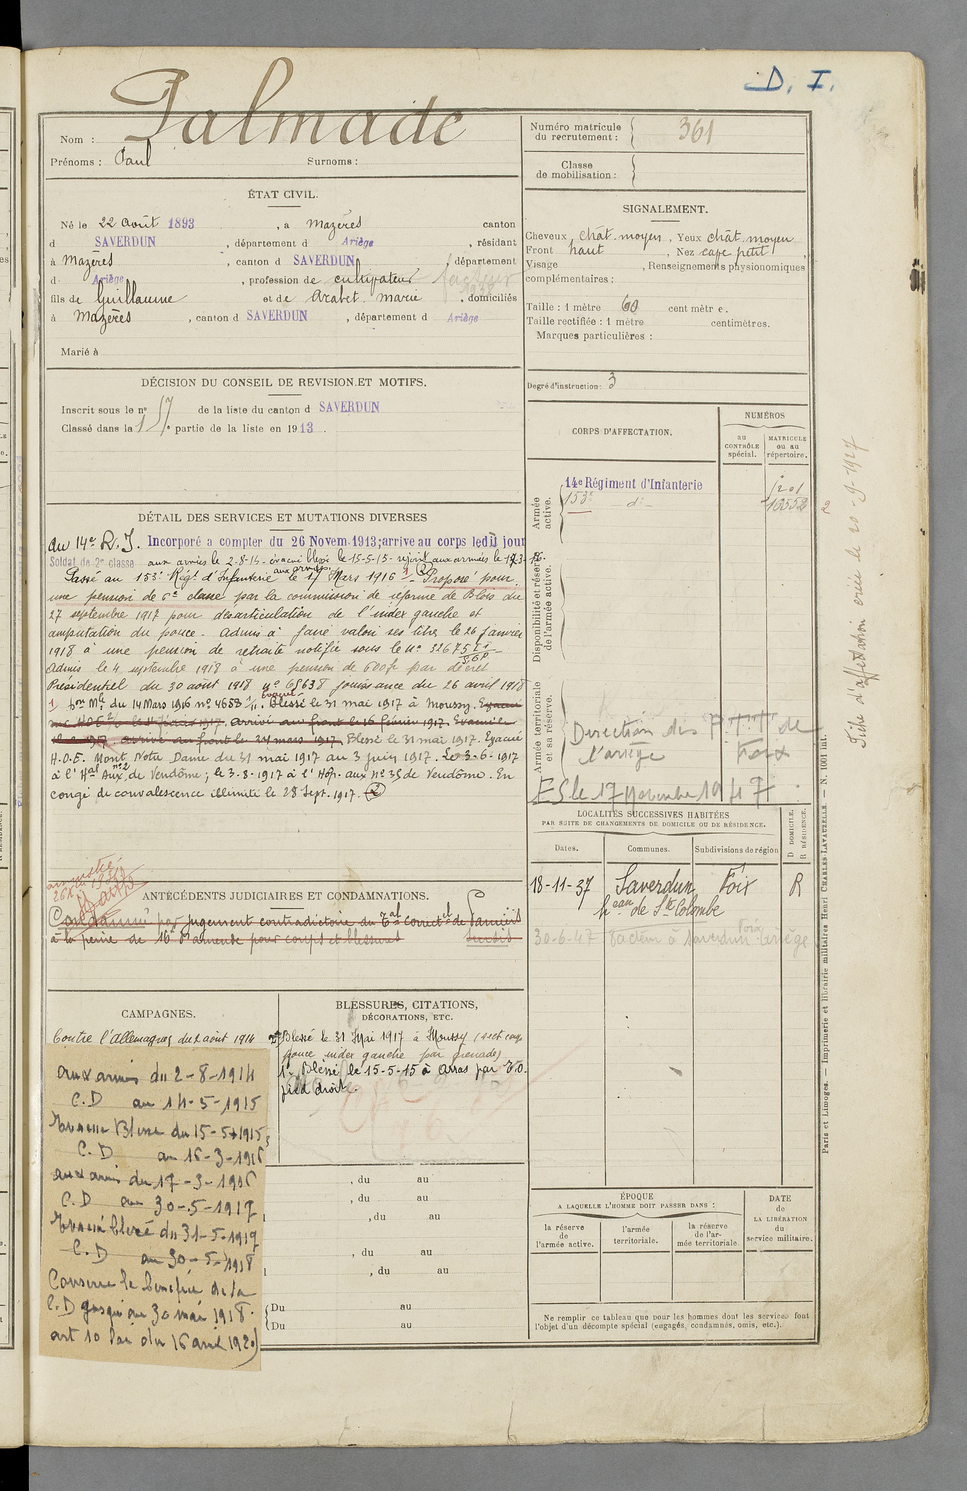 D. I.
Nom : Palmade
Prénoms : Paul Surnoms :
Numéro matricule du recrutement : 361
Classe de mobilisation :
ÉTAT CIVIL.
Né le 22 août 1893, à Mazères canton
d SAVERDUN, département d Ariège, résidant
à Mazères, canton d SAVERDUN, département
d Ariège, profession de cultivateur facteur
fils de Guillaume et de Arabet marie, domiciliés
à Mazères, canton d SAVERDUN, département d Ariège
Marié à
SIGNALEMENT.
Cheveux chât. moyen, Yeux chât. moyen
Front haut, Nez petit
Visage, Renseignements physionomiques
complémentaires :
Taille : 1 mètre 60 centimètre.
Taille rectifiée : 1 mètre centimètres.
Marques particulières :
Degré d'instruction : 3
DÉCISION DU CONSEIL DE REVISION ET MOTIFS.
Inscrit sous le n° 57 de la liste du canton d SAVERDUN
Classé dans la 1re partie de la liste en 1913.
DÉTAIL DES SERVICES ET MUTATIONS DIVERSES
au 14e R.I. Incorporé a compter du 26 Novem. 1913; arrive au corps ledit jour
Soldat de 2e classe aux armées le 2-8-14 - évacué blessé le 15-5-15 - rejoint aux armées le 17-3-16.
Passé au 153e Régt d'Infanterie aux armées le 17 Mars 1916 - Proposé pour
une pension de 6e classe par la commission de réforme de Blois du
27 septembre 1917 pour désarticulation de l'index gauche et
amputation du pouce. Admis à faire valoir ses titres le 26 janvier
1918 à une pension de retraite notifié sous le N°
Admis le 4 septembre 1918 à une pension de 600f par décret
Présidentiel du 30 août 1918 N° 65638 jouissance du 26 avril 1918
du 14 Mars 1916 n° 4653 évacué Blessé le 31 mai 1917 à Moussy. Evacué
arrivé au front le 16 février 1917. Evacué le
arrivé au front le 24 mars 1917. Blessé le 31 mai 1917. Evacué
H.O.E. Mont Notre Dame du 31 mai 1917 au 3 juin 1917. Le 3-6-1917
à l'Hal Aux. n°2 de Vendôme ; le 3-8-1917 à l'Hôp. aux N° 35 de Vendôme. En
congé de convalescence illimité le 28 Sept. 1917. (2)
CORPS D'AFFECTATION.
NUMÉROS
au CONTRÔLE spécial.
MATRICULE ou au répertoire.
Armée active.
14e Régiment d'Infanterie
153e d°
10552
Disponibilité et réserve de l'armée active.
Armée territoriale et sa réserve.
Direction des P.T.T. de
l'Ariège Foix
ES le 17 Novembre 1947
LOCALITÉS SUCCESSIVES HABITÉES
PAR SUITE DE CHANGEMENTS DE DOMICILE OU DE RÉSIDENCE.
Dates. Communes. Subdivisions de région
D DOMICILE.
R RÉSIDENCE.
18-11-37 Saverdun Foix R
heau de Ste Colombe
30-6-47 facteur à Saverdun Foix Ariège
amnistié
ANTÉCÉDENTS JUDICIAIRES ET CONDAMNATIONS.
Condamné par jugement contradictoire du Bal correctel de Pamiers
à la peine de 16f d'amende pour coups et blessures sursis
CAMPAGNES.
Contre l'Allemagne du 2 août 1914
aux armées du 2-8-1914
C.D au 14-5-1915
Evacué Blessé du 15-5-1915
C.D au 16-3-1916
aux armées du 17-3-1916
C.D au 30-5-1917
Evacué blessé du 31-5-1917
C.D au 30-5-1918
Conserve le bénéfice de la
C.D jusqu'au 30 mai 1918.
art 10 Loi du 16 avril 1920)
BLESSURES, CITATIONS,
DÉCORATIONS, ETC.
2° Blessé le 31 Mai 1917 à Moussy (sect.
pouce index gauche par grenade)
1° Blessé le 15-5-15 à Arras par E.O.
pied droit.
, du au
, du au
, du au
, du au
, du au
Du au
Du au
ÉPOQUE
A LAQUELLE L'HOMME DOIT PASSER DANS :
la réserve de l'armée active.
l'armée territoriale.
la réserve de l'armée territoriale
DATE DE LA LIBÉRATION du service militaire.
Ne remplir ce tableau que pour les hommes dont les services font
l'objet d'un décompte spécial (engagés, condamnés, omis, etc.).
Paris et Limoges. — Imprimerie et librairie militaires Henri CHARLES-LAVAUZELLE. — N. 1001 int.
Titre d'affectation créé le 20-9-1927